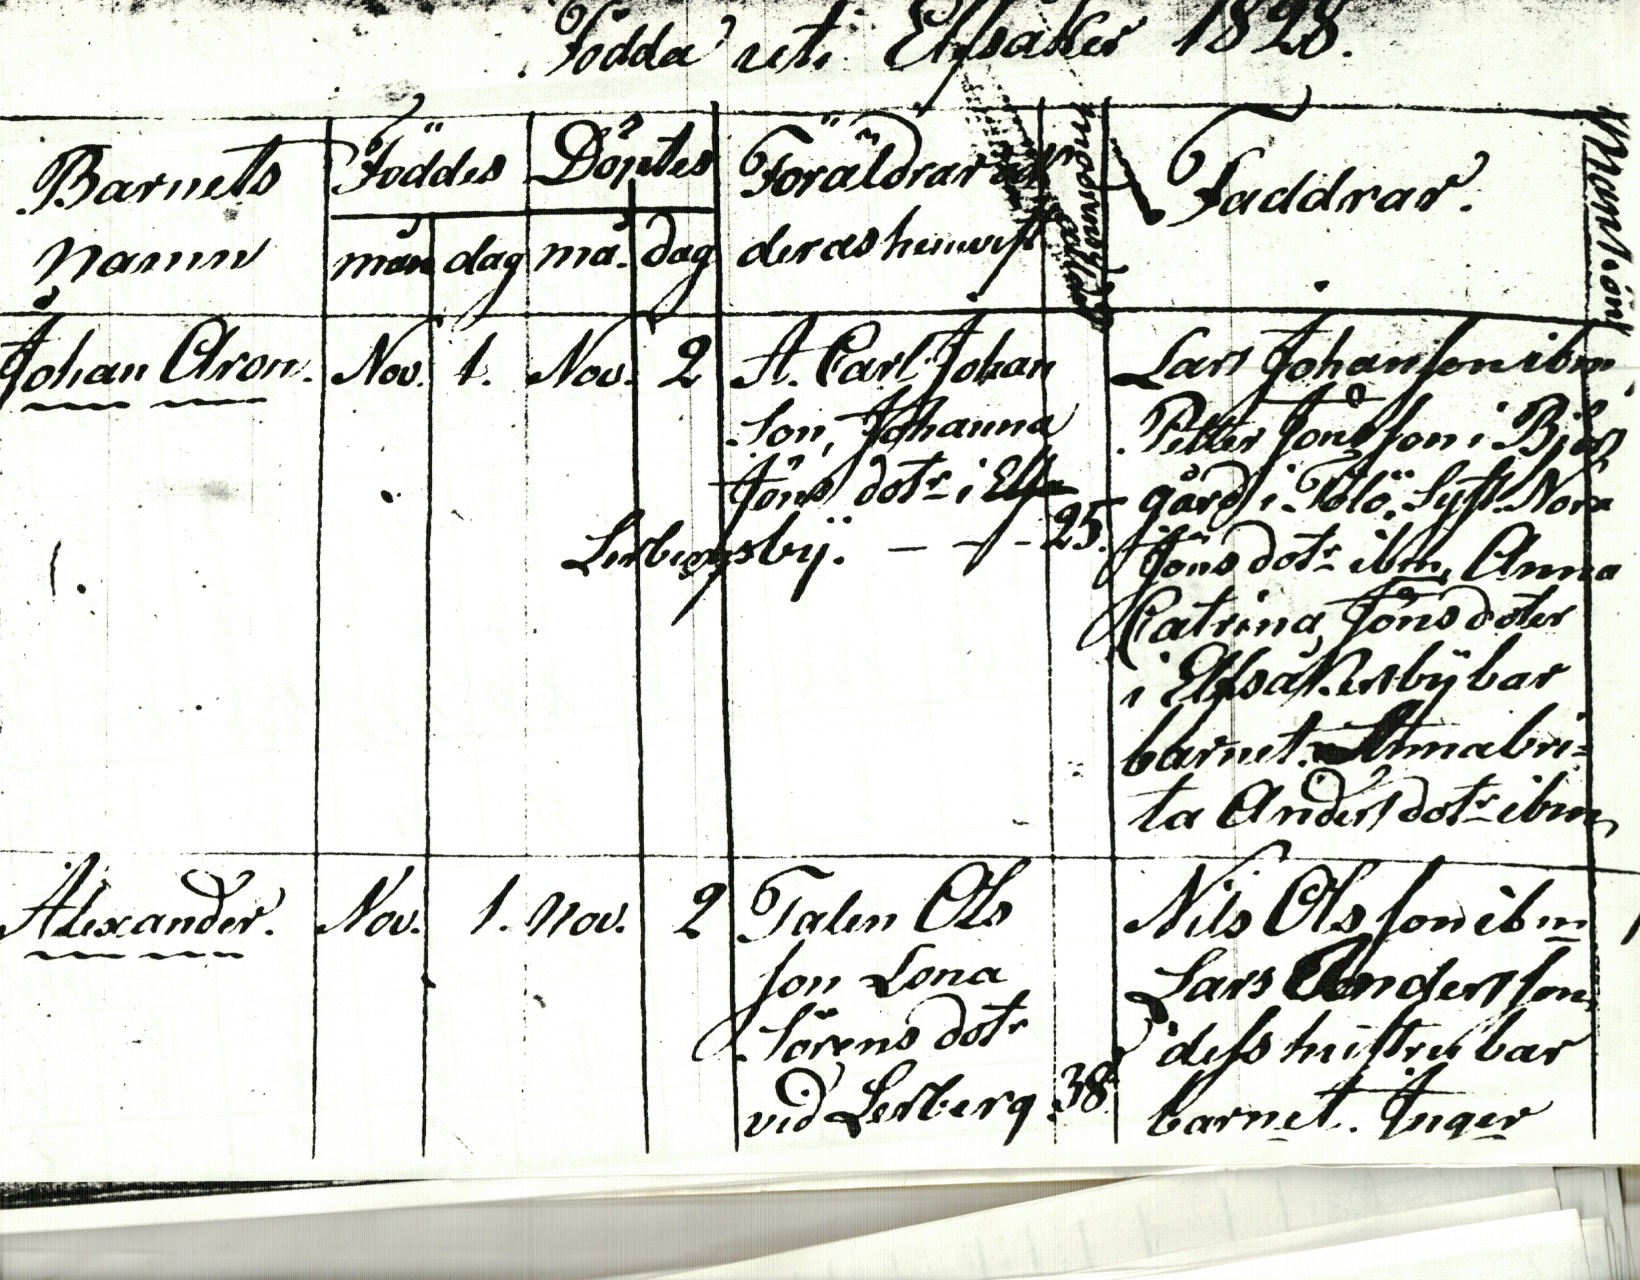 Födda uti Elfsåker 1828.
Barnets namn
Föddes
Döptes
Föräldrar
deras hemvist
Faddrar.
mån dag må. dag
Johan Aron. Nov. 1. Nov. 2
A. Carl Johan
Son, Johanna
Jöns dotr i Elfs
Lerbergsbÿ. — — - 25.
Lars Johanson ibm
Petter Jönsson i
gård i Tölö,
Jönsdotr ibm, Anna
Catrina Jönsdoter
i Elfsåkersbÿ bar
barnet. Annabri=
ta Andersdotr ibm,
Alexander. Nov. 1. Nov. 2
Talen Ols
son Lona
Sörens dotr
vid Lerberg. 38.
Nils Olsson ibm
Lars Andersson,
dess hustru bar
barnet. Inger